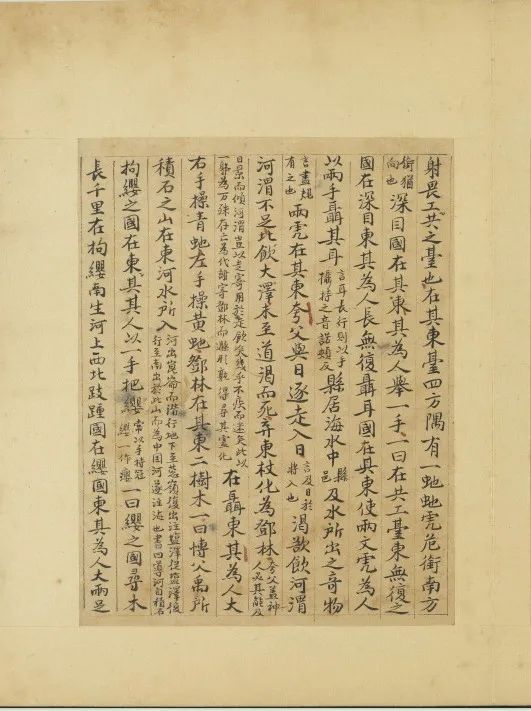 射畏工共之臺也在其東臺四方隅有一虵虵虎危衝南方
衝猶向也深目國在其東其為人舉一手一曰在共工臺東無復之
國在深目東其為人長無復聶耳國在其東使兩文虎為人
以兩手聶其耳言耳長行則以手攝持之音諾頰反縣居海水中縣邑及水所出之奇物
言盡規有之也兩虎在其東夸父與日逐走入日言及日於將入也渴欲飲河渭
河渭不足北飲大澤未至道渴而死弃東杖化為鄧林夸父盖神人之其能及
日景而傾河渭豈以走用於是飲哭幾乎不疾而速矣此以一躰為万殊存亡為代謝寄鄧林而遯形孰得尋其靈化在聶東其為人大
右手操青虵左手操黃虵鄧林在其東二樹木一曰博父禹所
積石之山在東河水所入河出崑崙而潛行地下至葱嶺復出注鹽澤從鹽澤復行至南出於此山而為中國河遂注海也書曰導河自積石
拘纓之國在東其其人以一手把纓常以手持冠纓纓一作癭一曰纓之國尋木
長千里在拘纓南生河上西北跂踵國在纓國東其為人大兩足